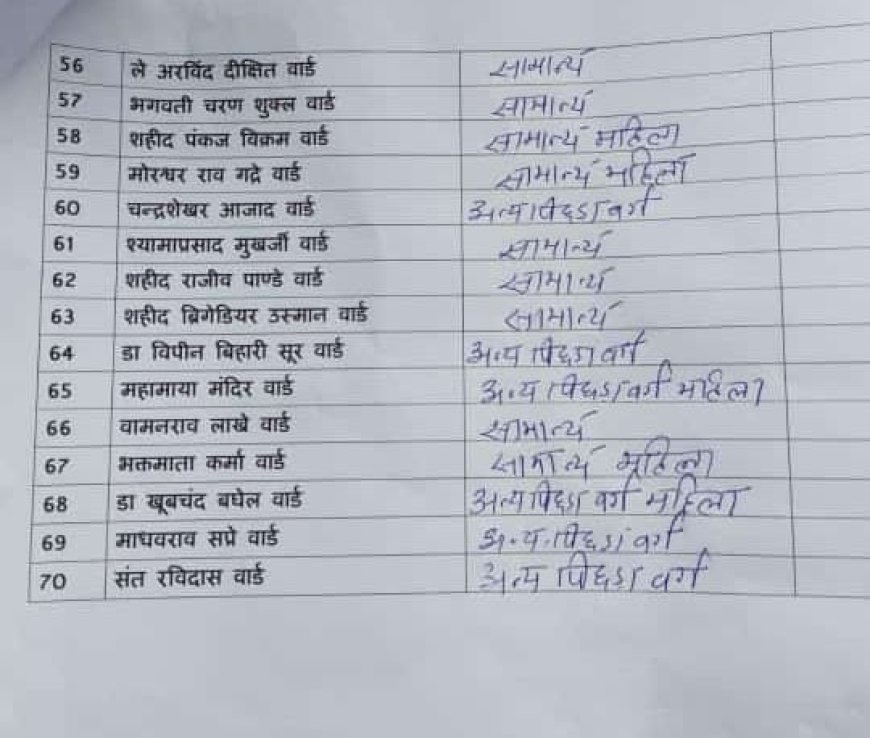 56 ले अरविंद दीक्षित वार्ड सामान्य
57 भगवती चरण शुक्ल वार्ड सामान्य
58 शहीद पंकज विक्रम वार्ड सामान्य महिला
59 मोरेश्वर राव गद्रे वार्ड सामान्य महिला
60 चन्द्रशेखर आजाद वार्ड अन्य पिछडा वर्ग
61 श्यामाप्रसाद मुखर्जी वार्ड सामान्य
62 शहीद राजीव पाण्डे वार्ड सामान्य
63 शहीद ब्रिगेडियर उस्मान वार्ड सामान्य
64 डा विपीन बिहारी सूर वार्ड अन्य पिछडा वर्ग
65 महामाया मंदिर वार्ड अन्य पिछडा वर्ग महिला
66 वामनराव लाखे वार्ड सामान्य
67 भक्तमाता कर्मा वार्ड सामान्य महिला
68 डा खूबचंद बघेल वार्ड अन्य पिछडा वर्ग महिला
69 माधवराव सप्रे वार्ड अन्य पिछडा वर्ग
70 संत रविदास वार्ड अन्य पिछडा वर्ग